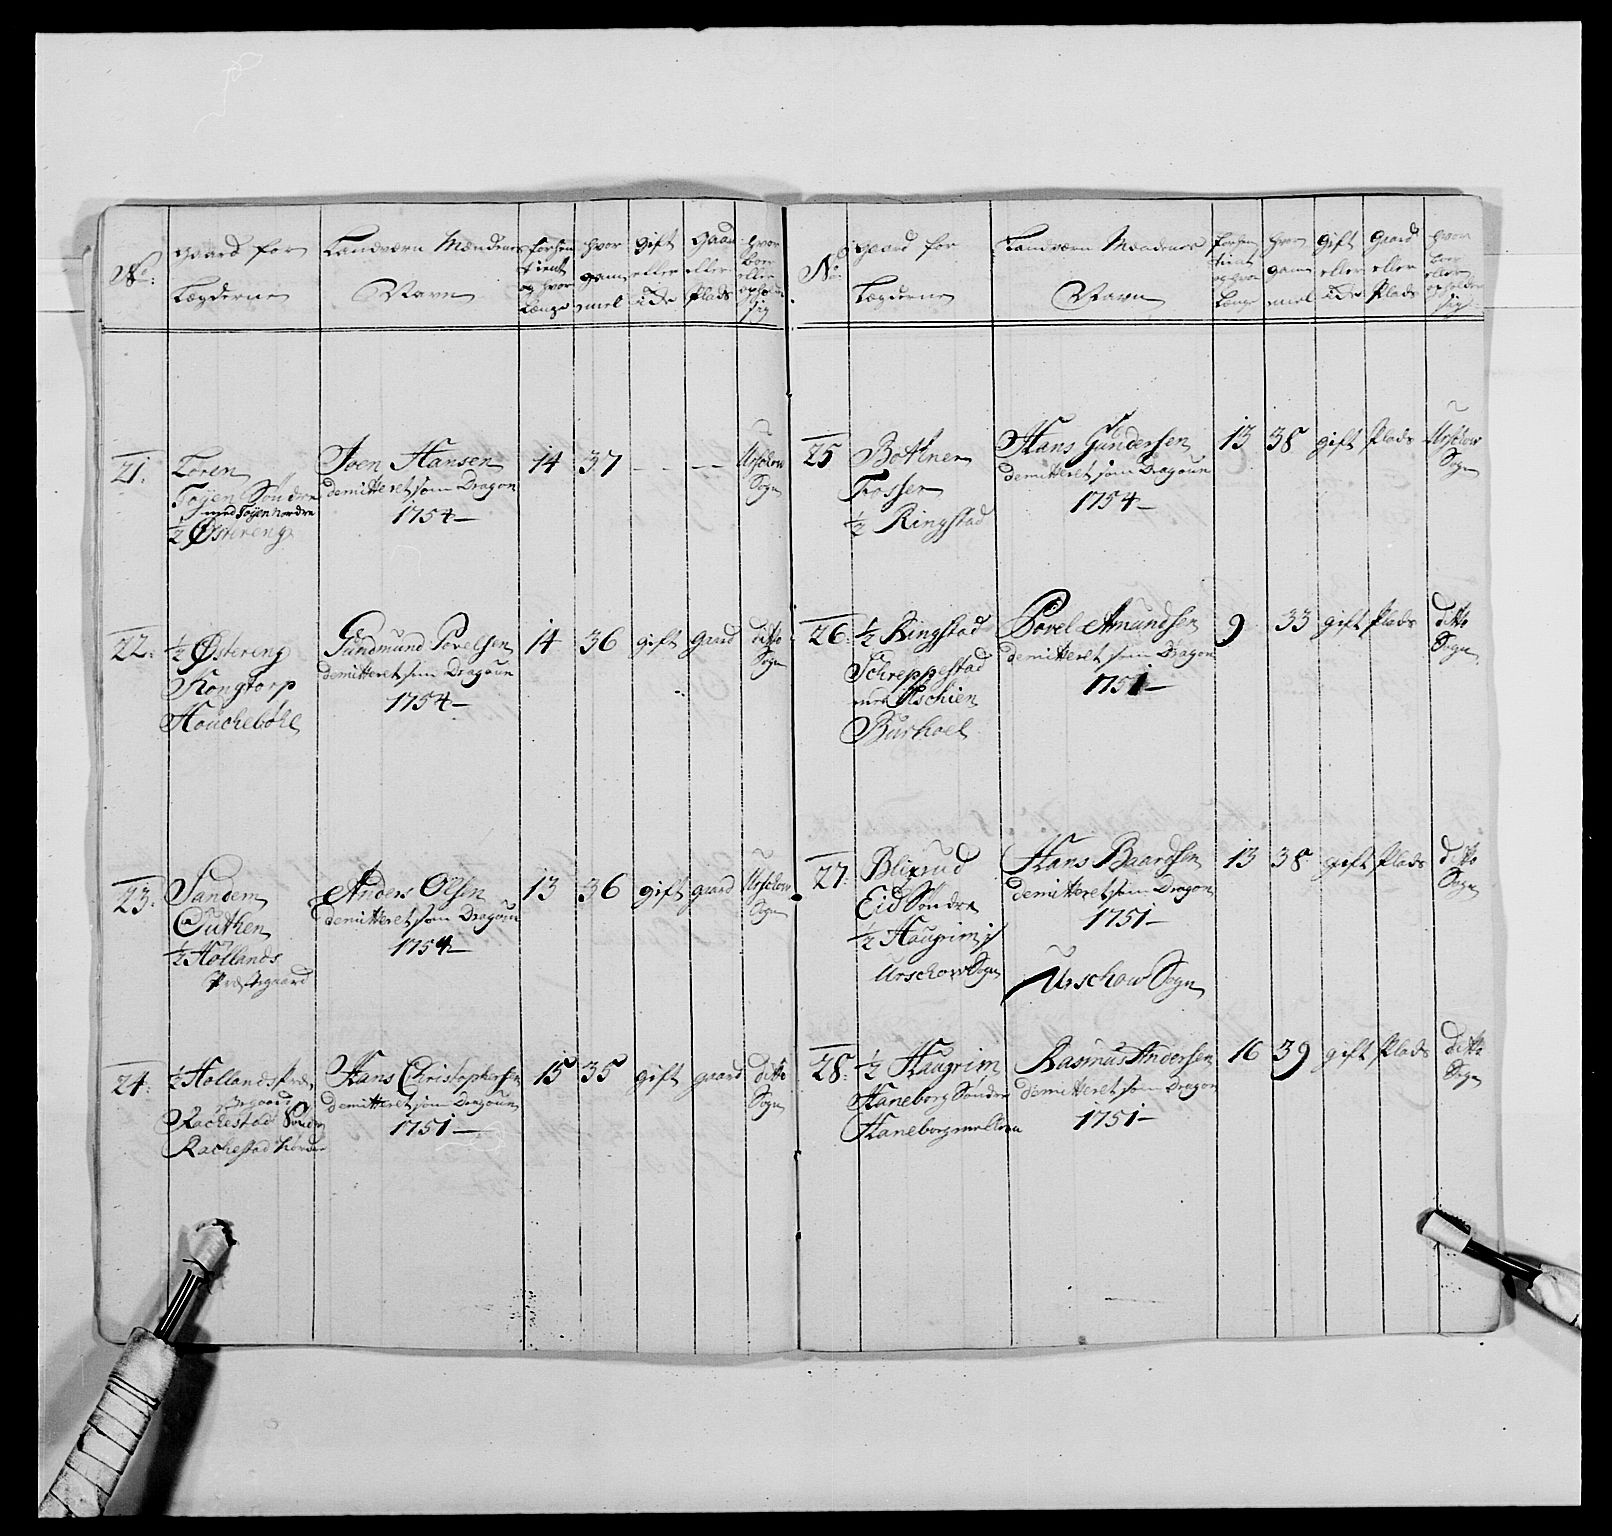 No:
Gaard for
Lægderne
Landværn Mændenes
Navn
forhen
tient
og hvor
Længe
hvor
gam
mel
gift
eller
Eide
Gaard
eller
Plads
hvor
boer
eller
opholder
sig
21.
Toren
Tøyen Søndre
med Tøyen nordre
½ Østereng
Joen Hansen
demitteret som Dragon
1754
14 37 - - - -
Urschow
Sogn
22:
½ Østereng
Kongtorp
Houcheböhl
Gundmund Povelsen
demitteret som Dragoun
1754
14 36 gift gaard
ditto
Sogn
23.
Sandem
Euthen
½ Hollands
Præstegaard
Anders Olsen
demitteret som Dragoun
1754
13 36 gift gaard
Urschow
Sogn
24.
½ Hollands Præ-
stegaard
Rachestad Søndre
Rachestad Nordre
Hans Christophersen
demitteret som Dragoun
1751
15 35 gift gaard
ditto
Sogn
No:
Gaard for
Lægderne
Landværn Mændenes
Navn
forhen
tient
og hvor
Længe
hvor
gam
mel
gift
eller
Eide
Gaard
eller
Plads
hvor
boer
eller
opholder
sig
25
Bottner
Tosser
½ Ringstad
Hans Gundersen
demitteret som Dragoun
1754
13 38 gift Plads
Urschow
Sogn
26.
½ Ringstad
Schreppestad
med Aschien
Burhoel
Povel Amundsen
demitteret som Dragon
1751
9 33 gift Plads
ditto
Sogn
27.
Blixrud
Eid Søndre
½ Haugrim i
Urschow Sogn
Hans Baardsen
demitteret som Dragon
1751
Urschow Sogn
13 38 gift Plads
ditto
Sogn
28.
½ Haugrim
Haneborg Søndre
Haneborg mellem
Rasmus Andersen
demitteret som Dragon
1751
16 39 gift Plads
ditto
Sogn